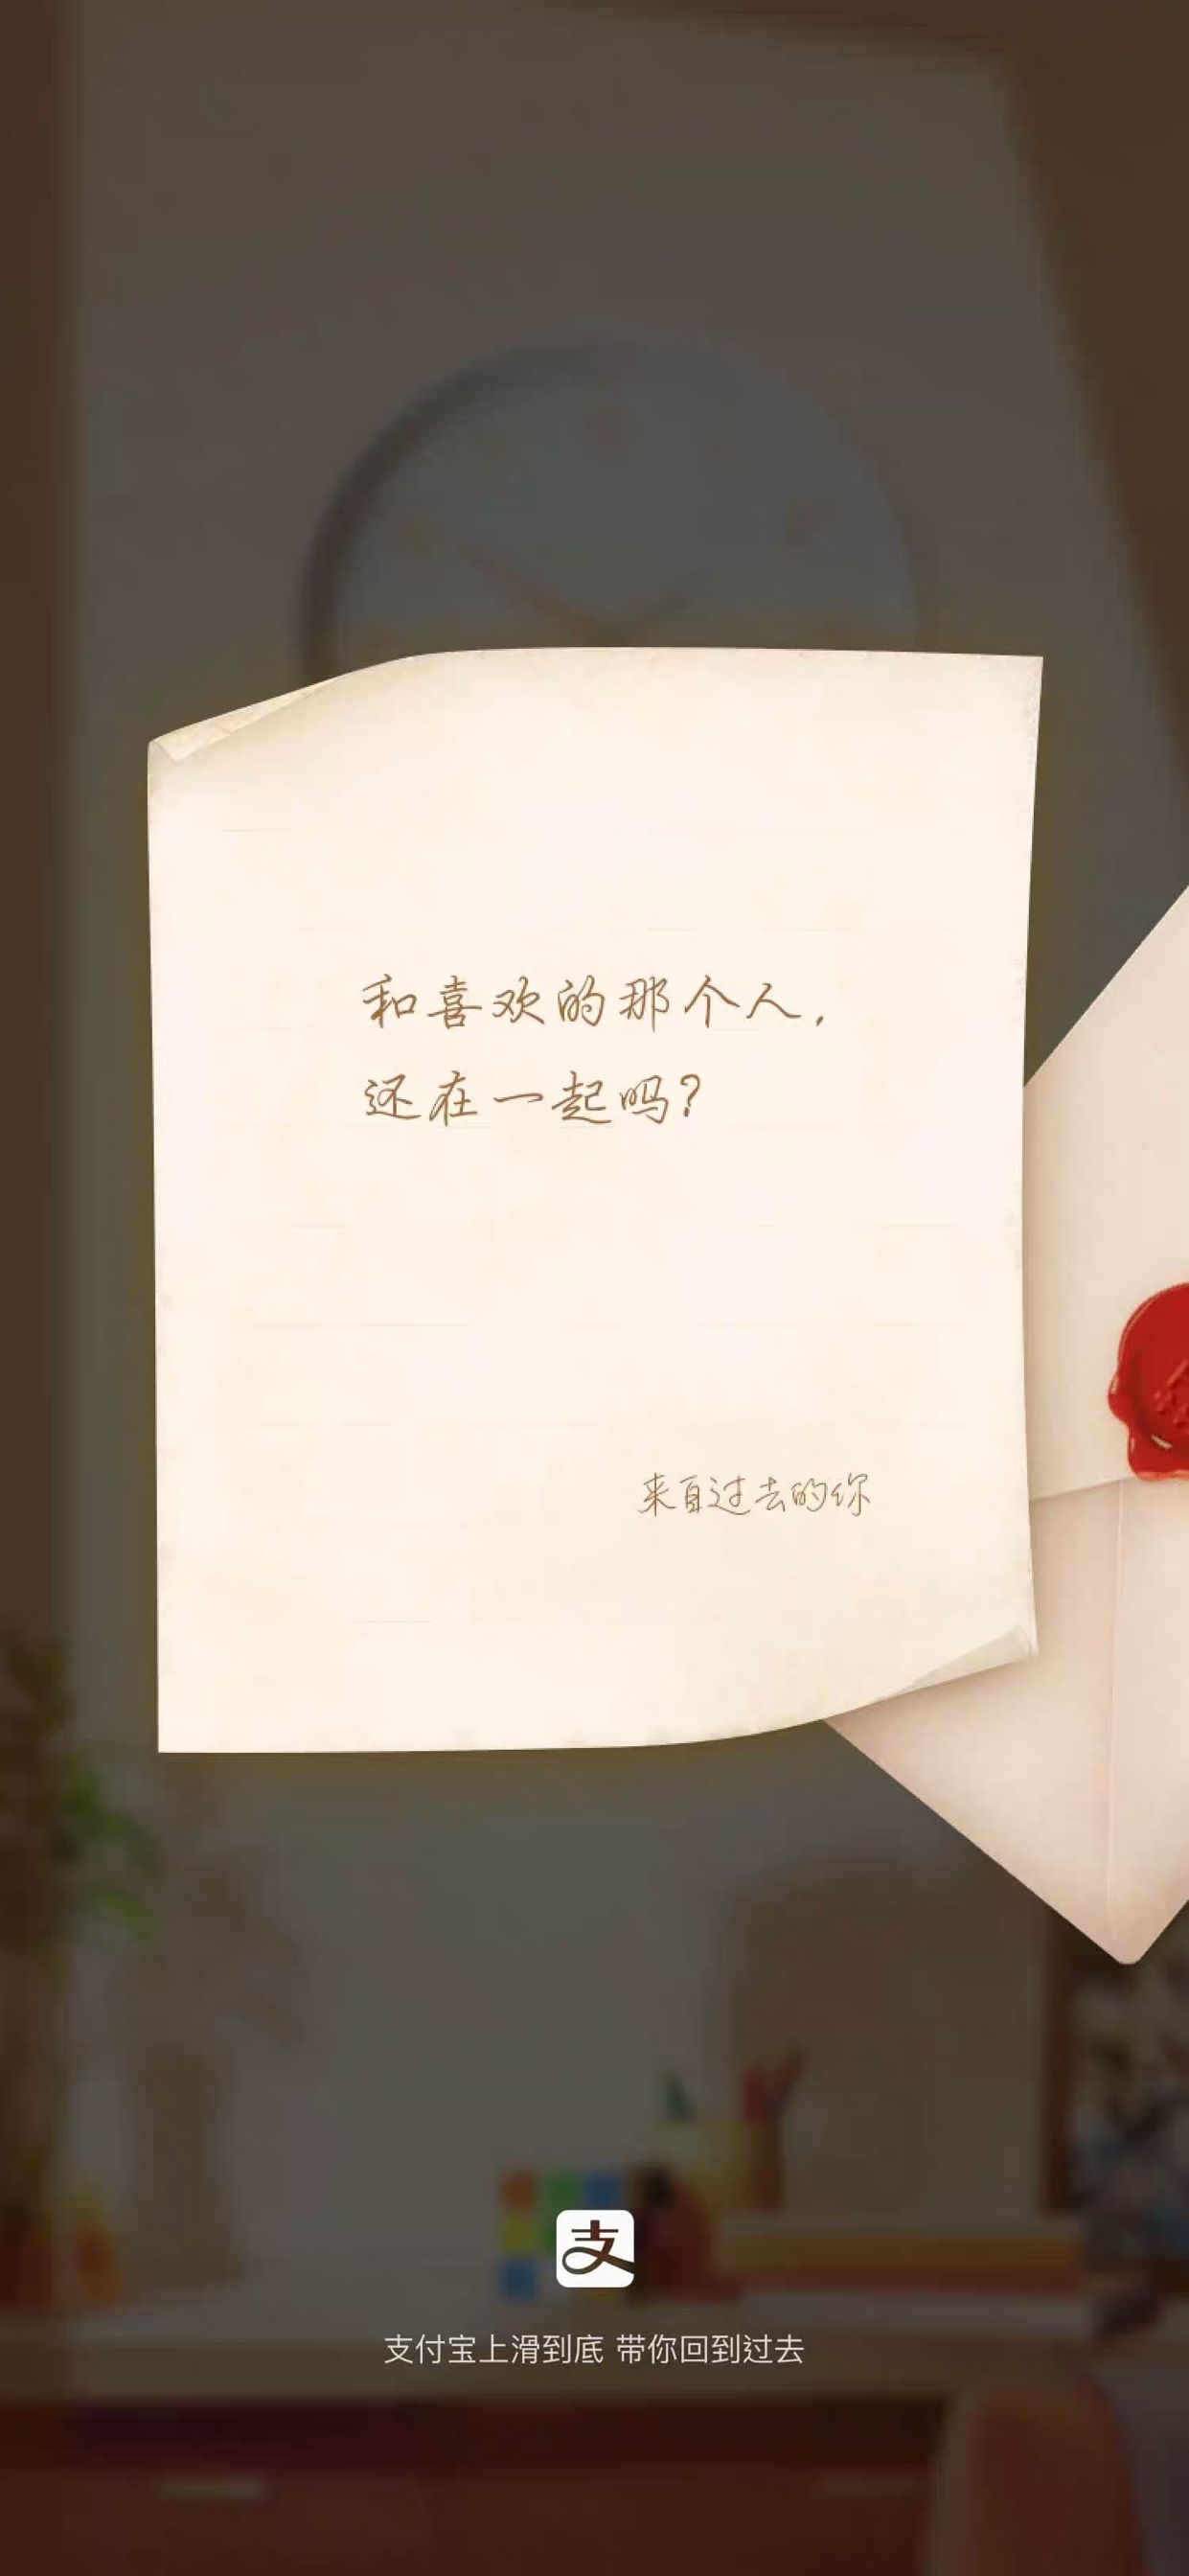 和喜欢的那个人，
还在一起吗？
来自过去的你
支
支付宝上滑到底 带你回到过去